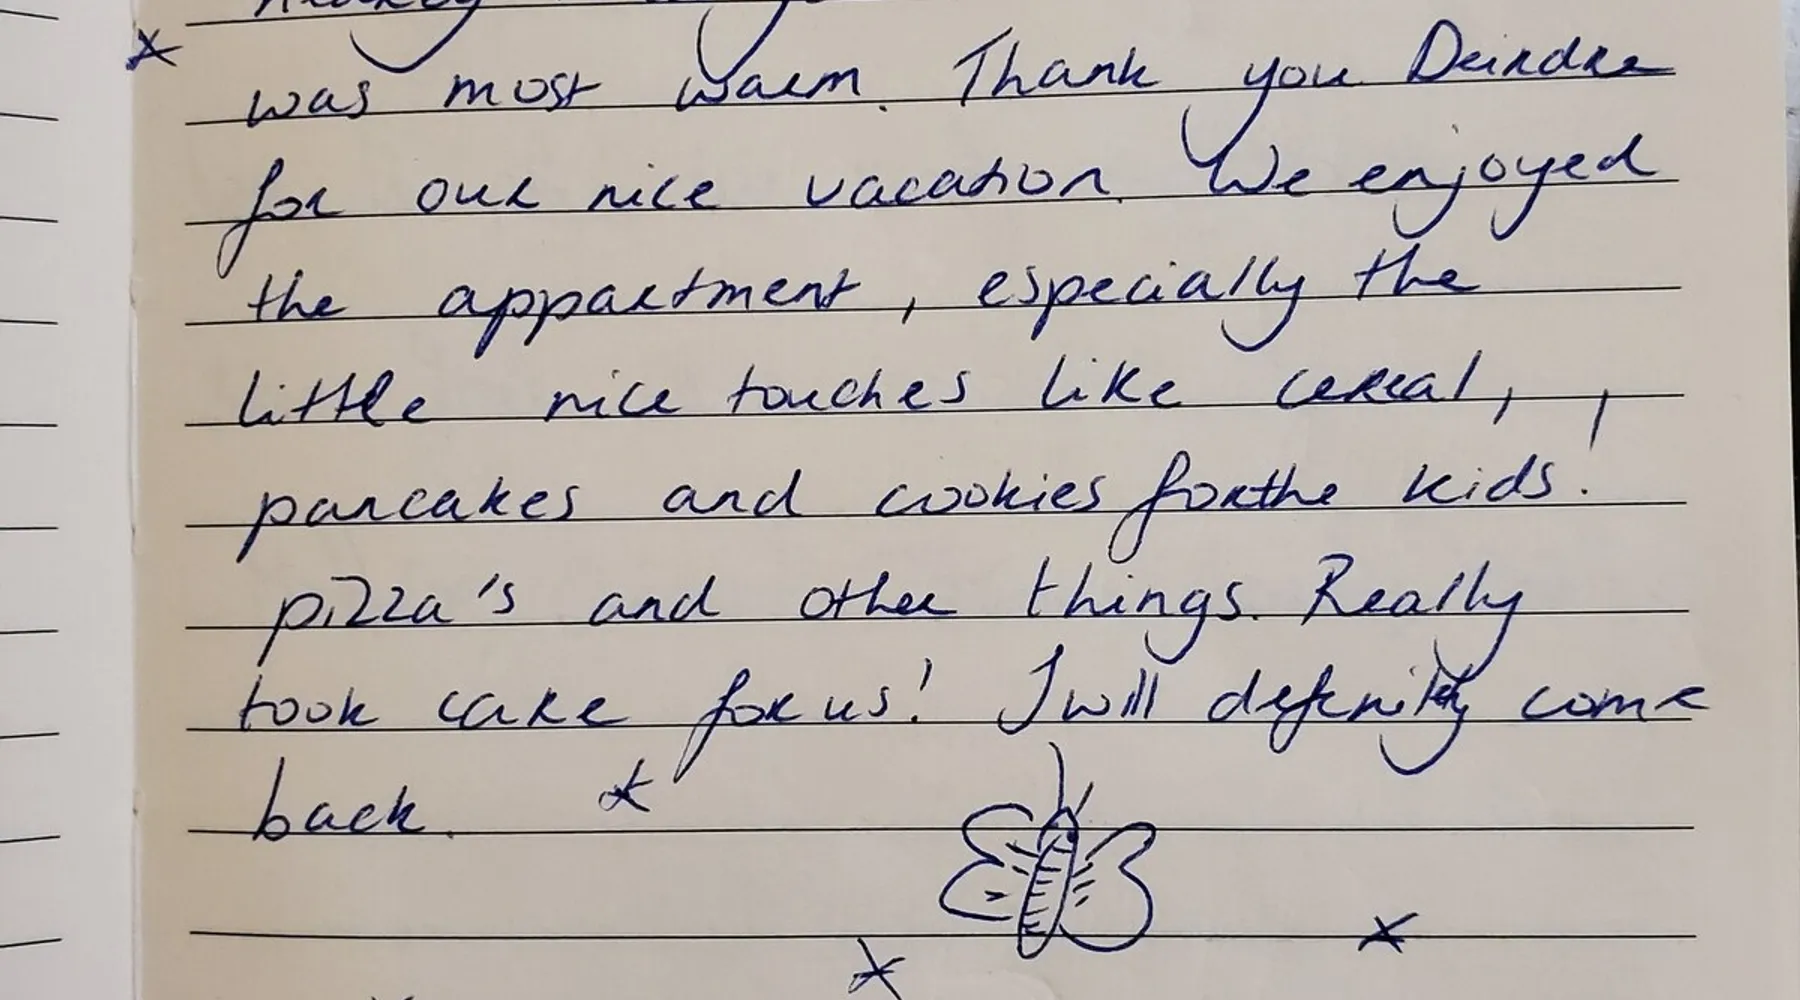 was most warm. Thank you Deirdre
for our nice vacation. We enjoyed
the appartment, especially the
little nice touches like cereal,
pancakes and cookies for the kids!
pizza's and other things. Really
took care for us! I will definitly come
back.